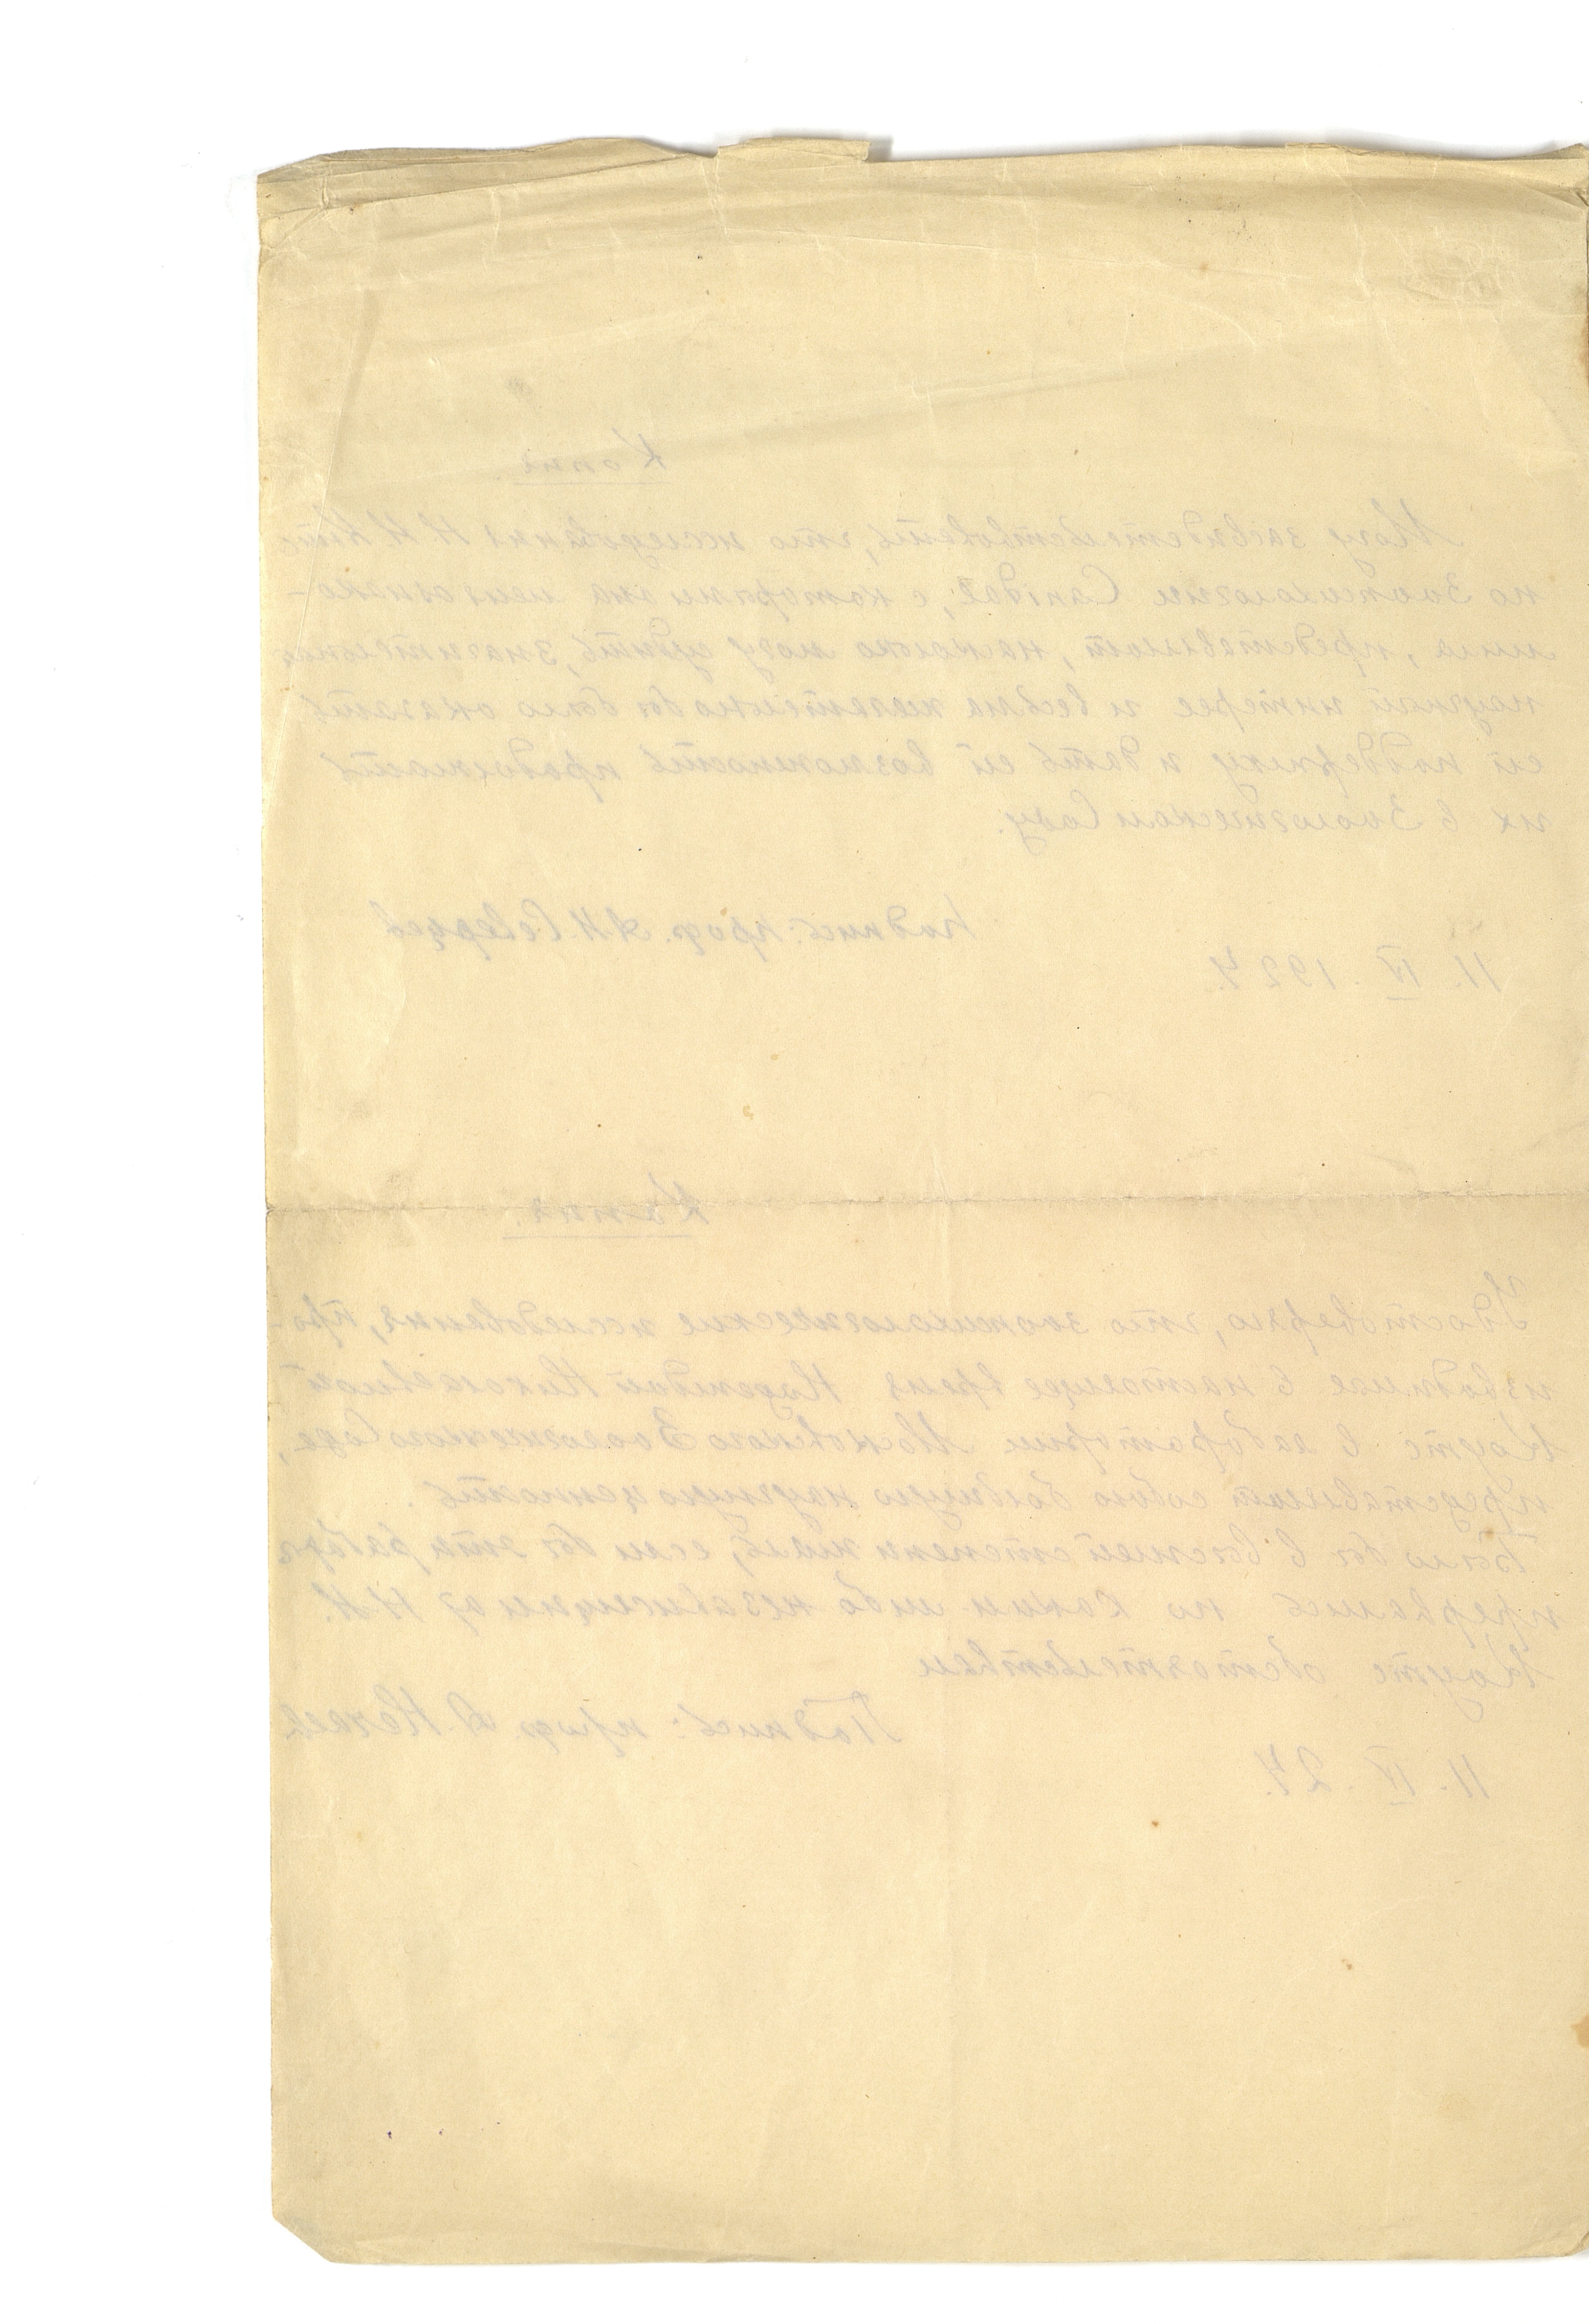 Копия
Могу засвидетельствовать, что исследования Н. Н.
по Зоопсихологии Canidae, с которыми она меня ознако-
мила, представляют, насколько могу судить, значительный
научный интерес и весьма желательно бы было оказать
ей поддержку и дать ей возможность продолжать
их в Зоологическом Саду.
Подпись: проф. А.Н. Северцев
11. IV. 1924.
Копия.
Удостоверяю, что зоопсихологические исследования, про-
изводимые в настоящее время Надеждой Николаевной
в лаборатории Московского Зоологического Сада,
представляют собою большую научную ценность.
Было бы в высшей степени жаль, если бы эти работы
прервались по каким либо независящим от Н.Н.
обстоятельствам
Подпись: проф. А. Нечаев
11. IV. 24.